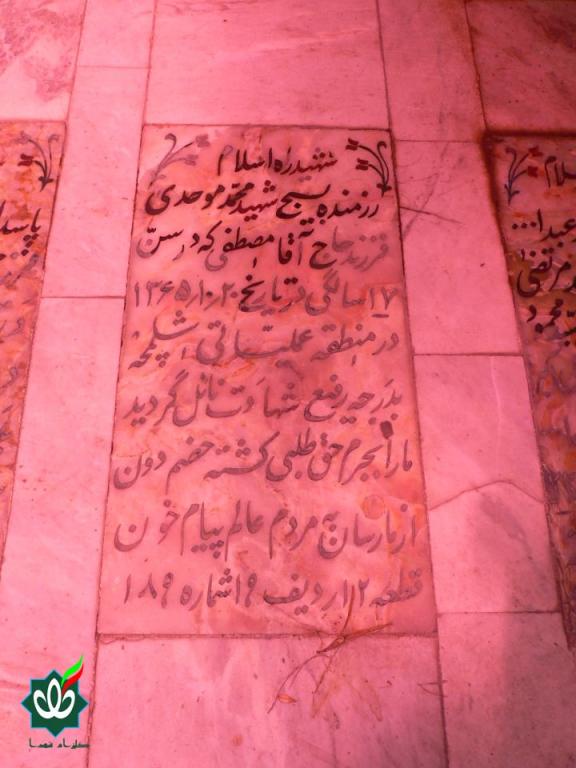 شهید راه اسلام
رزمنده بسیج شهید محمد موحدی
فرزند حاج آقا مصطفی که در سن
۱۷ سالگی در تاریخ ۱۳۶۵/۱۰/۲۰
در منطقه عملیاتی شلمچه
بدرجه رفیع شهادت نائل گردید
ما را بجرم حق طلبی کشته خصم دون
از ما رسان به مردم عالم پیام خون
قطعه ۱۲ ردیف ۱۹ شماره
پاسدار
اسلام
عبدا...
مرتضی
محمود